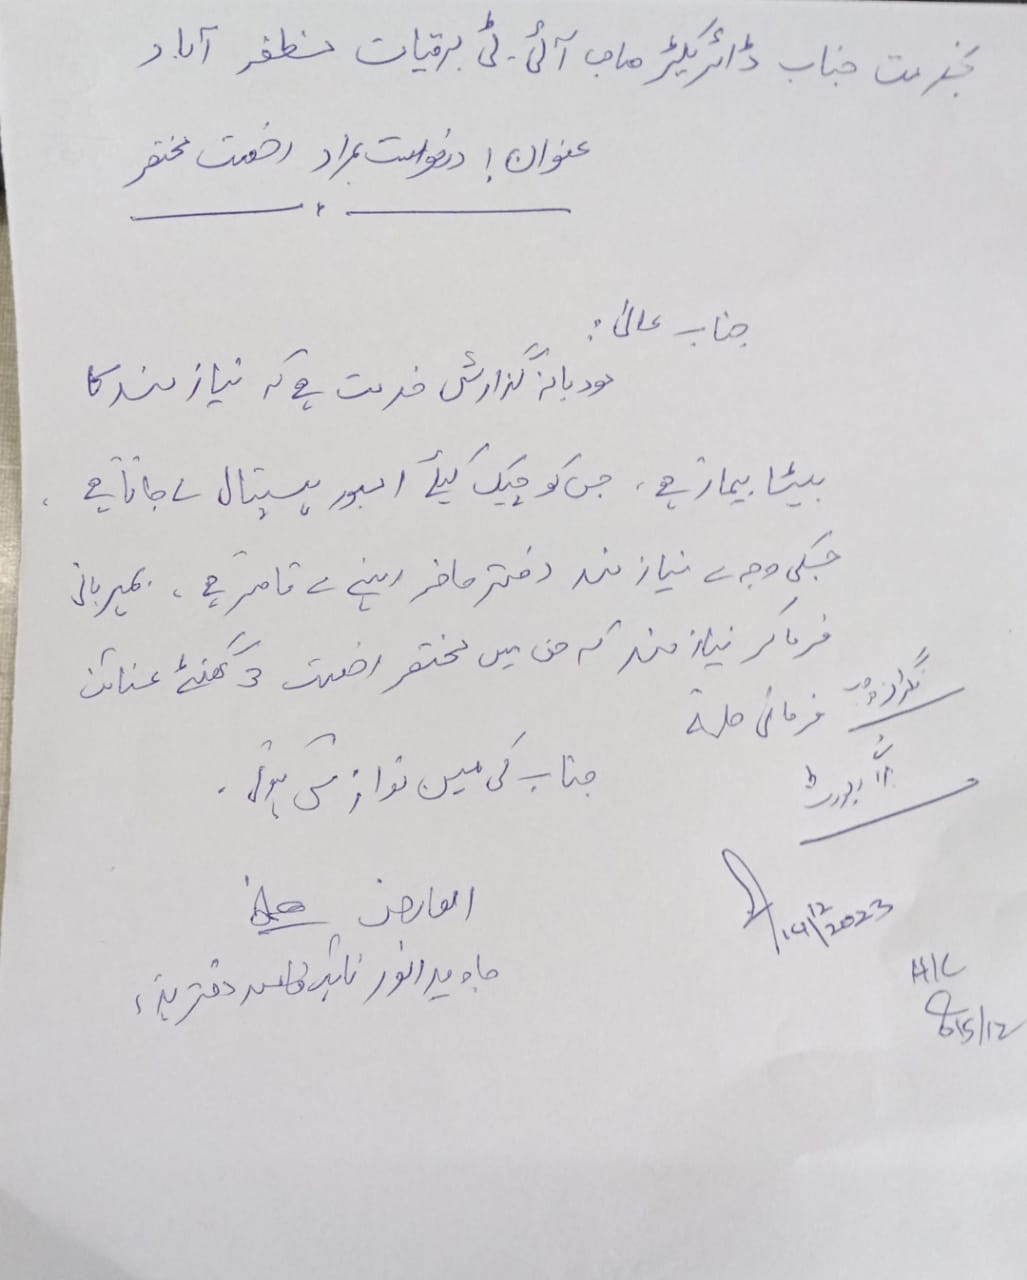 بخدمت جناب ڈائریکٹر صاحب آئی۔ٹی برقیات مظفر آباد
عنوان! درخواست بمراد رخصت مختصر
جناب عالی:
مودبانہ گزارش خدمت ہے کہ نیاز مند کا
بیٹا بیمار ہے، جس کو چیک کیلئے امبور ہسپتال لے جانا ہے،
جسکی وجہ سے نیاز مند دفتر حاضر رہنے سے قاصر ہے، بمہربانی
فرما کر نیاز مند کے حق میں مختصر رخصت 3 گھنٹے عنائت
فرمائی جائے
جناب کی عین نوازش ہوگی۔
العارض
جاوید انور نائب قاصد دفتر ہذا،
رپورٹ
14/12/2023
H/C
15/12